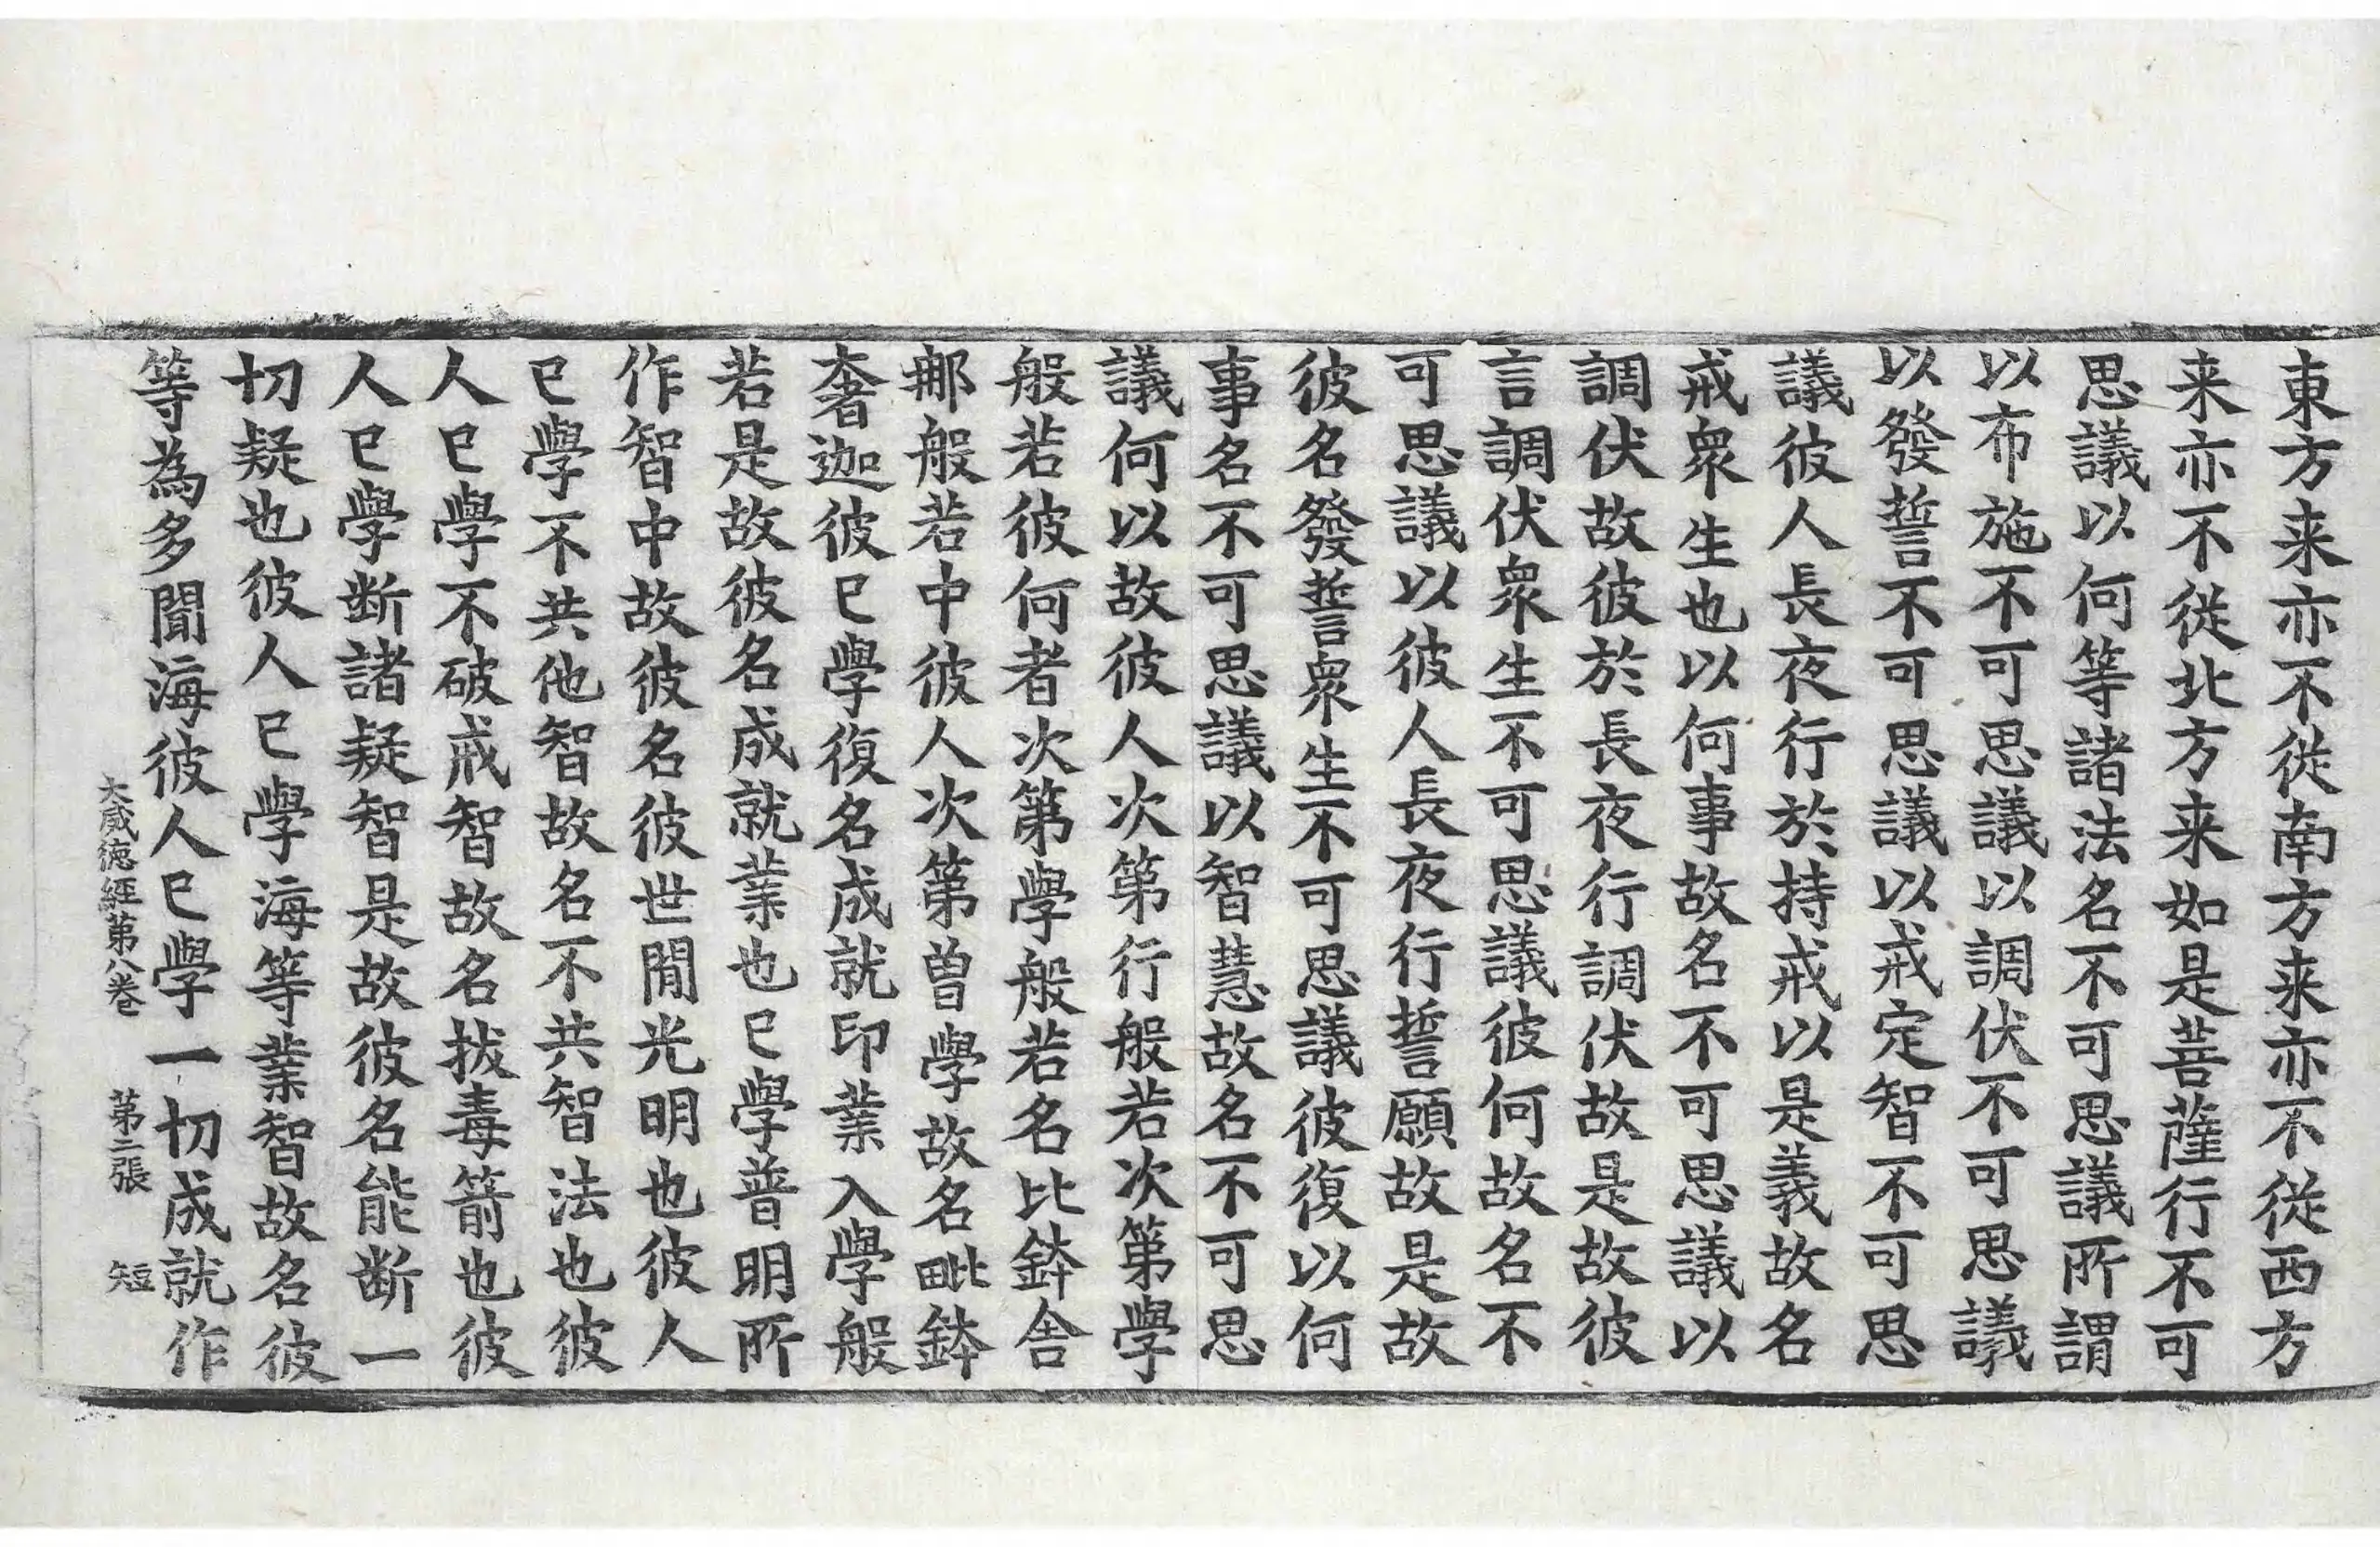 東方来亦不從南方来亦不從西方
来亦不從北方来如是菩薩行不可
思議以何等諸法名不可思議所謂
以布施不可思議以調伏不可思議
以發誓不可思議以戒定智不可思
議彼人長夜行於持戒以是義故名
戒衆生也以何事故名不可思議以
調伏故彼於長夜行調伏故是故彼
言調伏衆生不可思議彼何故名不
可思議以彼人長夜行誓願故是故
彼名發誓衆生不可思議彼復以何
事名不可思議以智慧故名不可思
議何以故彼人次第行般若次第學
般若彼何者次第學般若名比鉢舍
那般若中彼人次第曽學故名毗鉢
奢迦彼已學復名成就印業入學般
若是故彼名成就業也已學普明所
作智中故彼名彼世閒光明也彼人
已學不共他智故名不共智法也彼
人已學不破戒智故名拔毒箭也彼
人已學断諸疑智是故彼名能断一
切疑也彼人已學海等業智故名彼
等為多聞海彼人已學一切成就作
大威德經第八卷 第二張 短